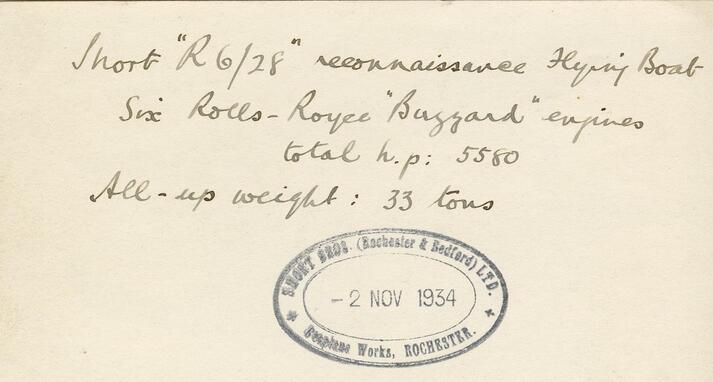 Short "R 6/28" reconnaissance Flying Boat
Six Rolls-Royce "Buzzard" engines
total h.p: 5580
All-up weight: 33 tons
SHORT BROS. (Rochester & Bedford) LTD.
- 2 NOV 1934
Seaplane Works, ROCHESTER.